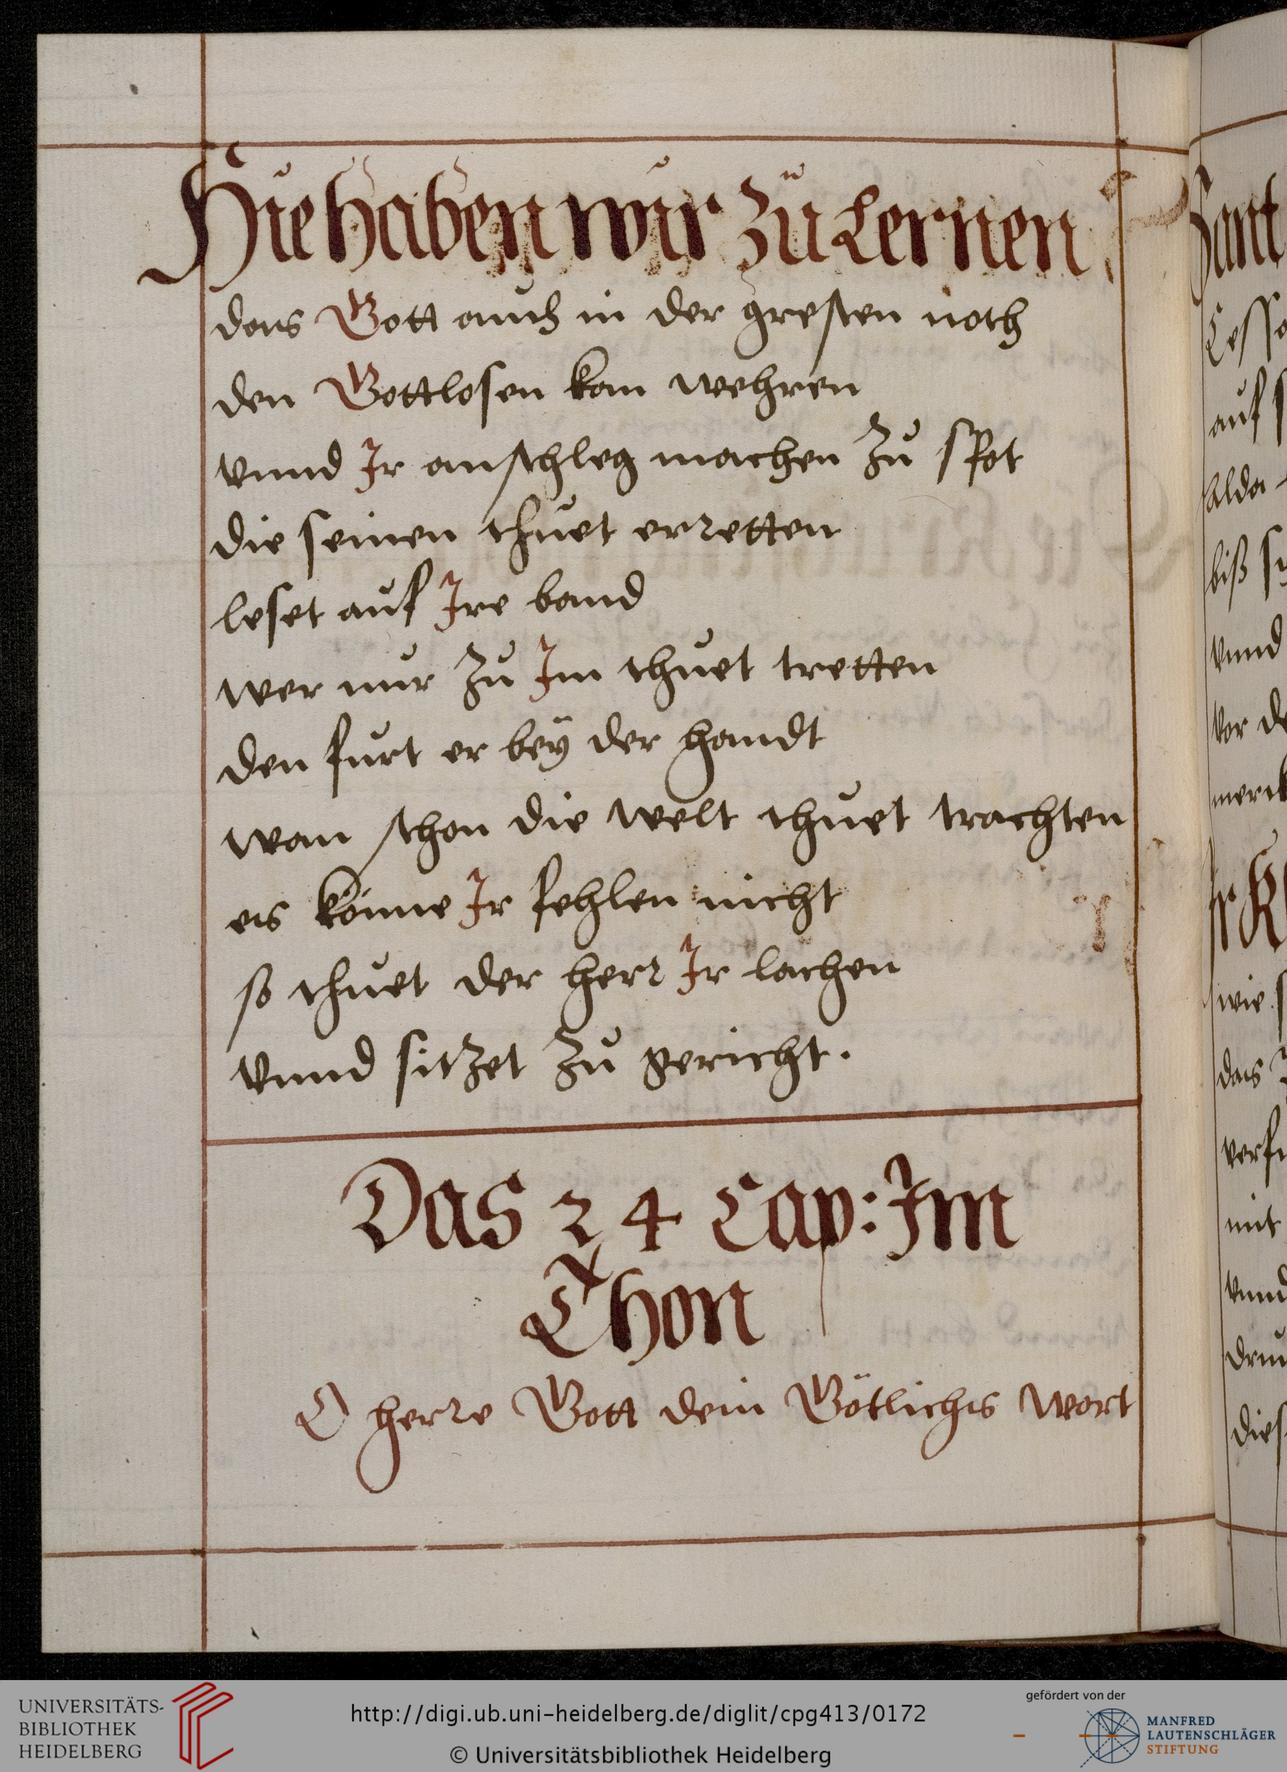 Hie haben wir zu Lernen
das Gott auch in der gresten noth
den Gottlosen kan wehren
vnnd Ir anschleg machen zu spot
die seinen thuet erretten
leset auf Ire band
wer nur zu Im thuet tretten
den furt er bey der handt
wan schon die welt thuet trachten
es könne Ir fehlen nicht
so thuet der herr Ir lachen
vnnd sitzet zu gericht.
Das 24 Cap: Im
Thon
O herre Gott dein Götlichs wort
auf
Alda
biß
vnnd
vor
wie
das
mit
vnnd
UNIVERSITÄTS-
BIBLIOTHEK
HEIDELBERG
http://digi.ub.uni-heidelberg.de/diglit/cpg413/0172
© Universitätsbibliothek Heidelberg
gefördert von der
MANFRED
LAUTENSCHLÄGER
STIFTUNG